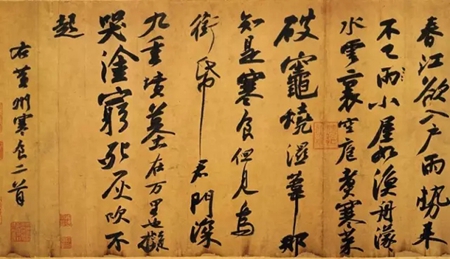 春江欲入戶雨勢来
不已雨小屋如漁舟濛〻
水雲裏空庖煮寒菜
破竈燒濕葦那
知是寒食但見烏
銜帋君門深
九重墳墓在万里也擬
哭塗窮死灰吹不
起
右黄州寒食二首